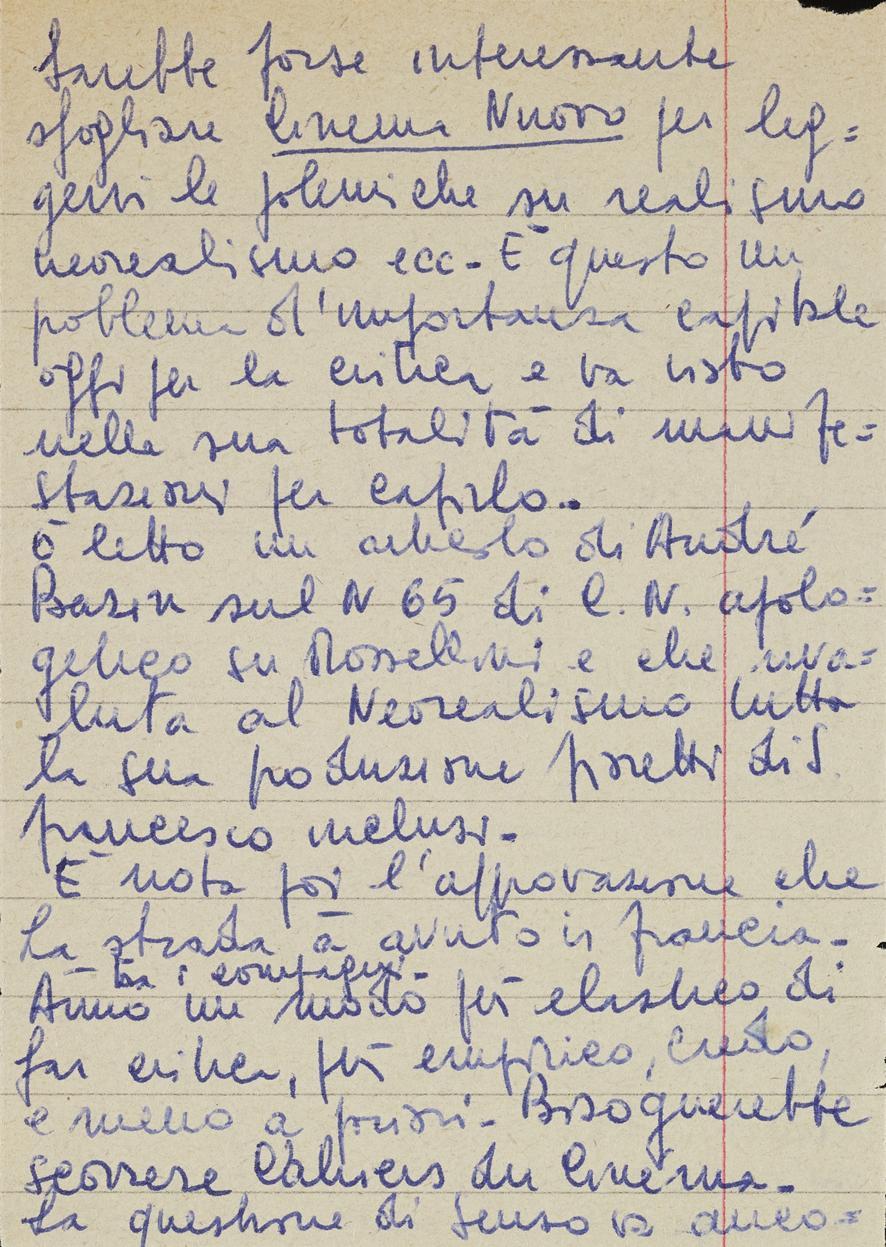 Sarebbe forse interessante
sfogliare Cinema Nuovo per leg=
gervi le polemiche su realismo
neorealismo ecc- E questo un
poblema d'importanza capitale
oggi per la critica e va visto
nella sua totalità di manife=
stazioni per capirlo..
ō letto un articolo di André
Bazin sul N 65 di C. N. apolo=
getico su Rossellini e che riva=
luta al Neorealismo tutta
la sua poduzione fioretti di S.
francesco inclusi-
È nota poi l'appovazione che
la strada ā avuto in francia-
tra i compagni-
Anno un modo più elastico di
far critica, più empirico, credo,
e meno a priori- Bisognerebbe
scorrere Cahiers du Cinéma-
La questione di Senso va anco=